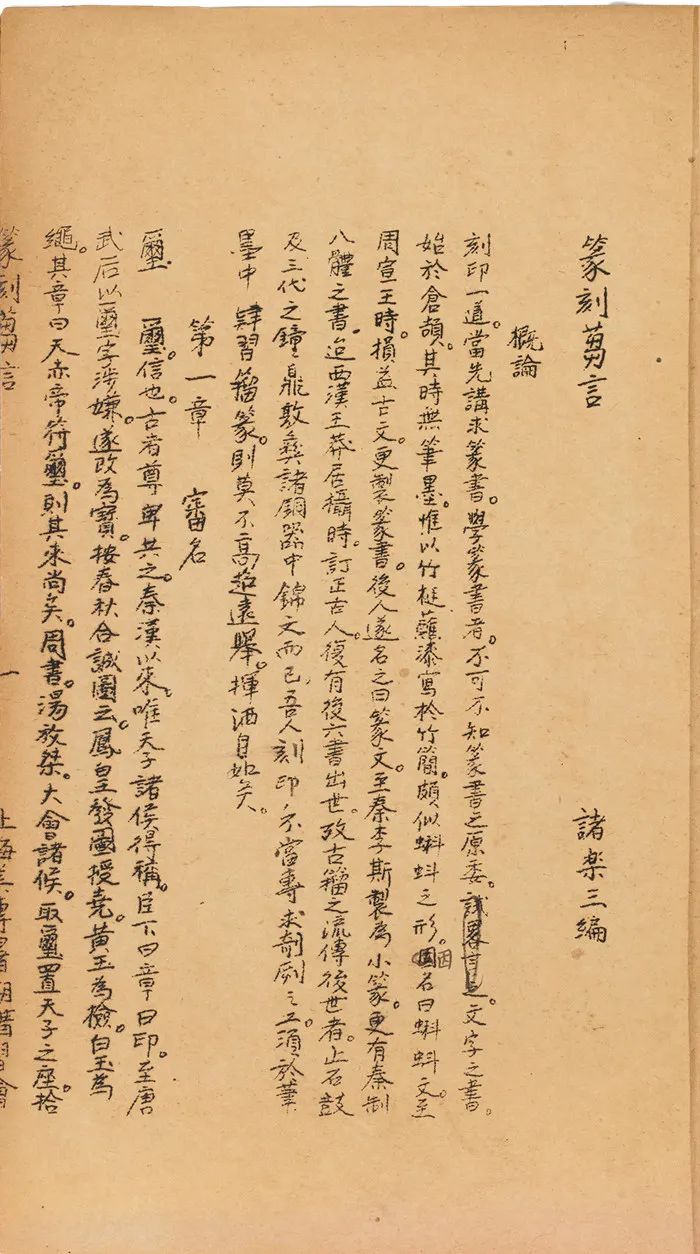 篆刻芻言
諸樂三編
概論
刻印一道。當先講求篆書。學篆書者。不可不知篆書之原委。試畧言之。文字之書。
始於倉頡。其時無筆墨。惟以竹梃蘸漆寫於竹簡。頗似蝌蚪之形。因名曰蝌蚪文。至
周宣王時。損益古文。更製篆書。後人遂名之曰篆文。至秦李斯製為小篆。更有秦制
八體之書。迨西漢王莽居攝時。訂正古人。復有後六書出世。故古籀之流傳後世者。止石鼓
及三代之鐘鼎敦彝諸銅器中銘文而已。吾人刻印。不當專求剞劂之工。須於筆
墨中肄習籀篆。則莫不高超遠舉。揮洒自如矣。
第一章 審名
璽 璽。信也。古者尊卑共之。秦漢以來。唯天子諸侯得稱。臣下曰章曰印。至唐
武后以璽字涉嫌。遂改為寶。按春秋合誠圖云。鳳皇發圖授堯。黃玉為檢。白玉為
繩。其章曰天赤帝符璽。則其來尚矣。周書。湯放桀。大會諸侯。取璽置天子之座拾
篆刻芻言 一 上海美專